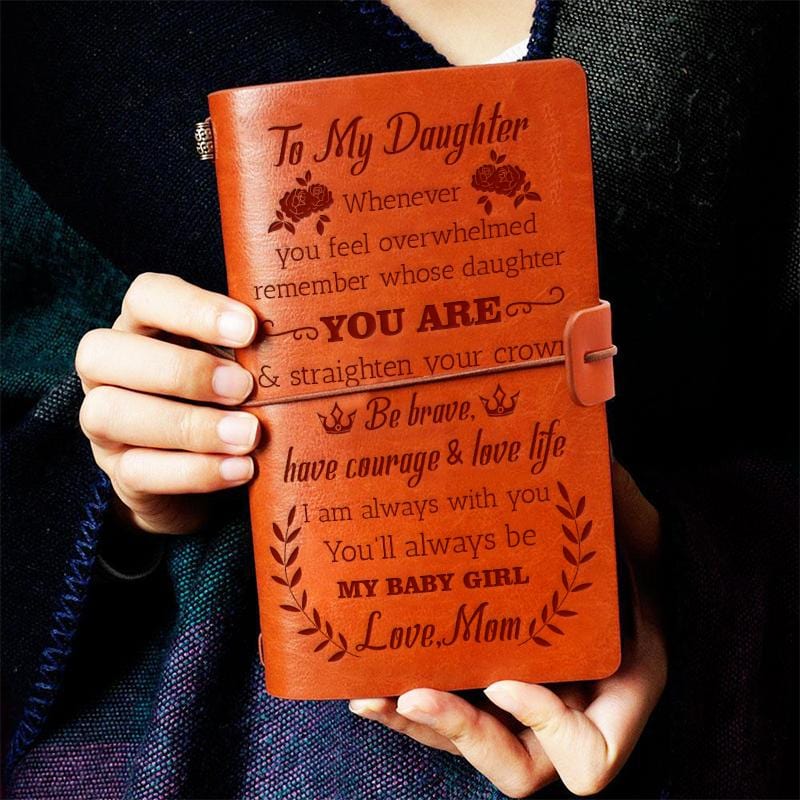 To My Daughter
Whenever
you feel overwhelmed
remember whose daughter
YOU ARE
& straighten your crown
Be brave,
have courage & love life
I am always with you
You'll always be
MY BABY GIRL
Love,Mom